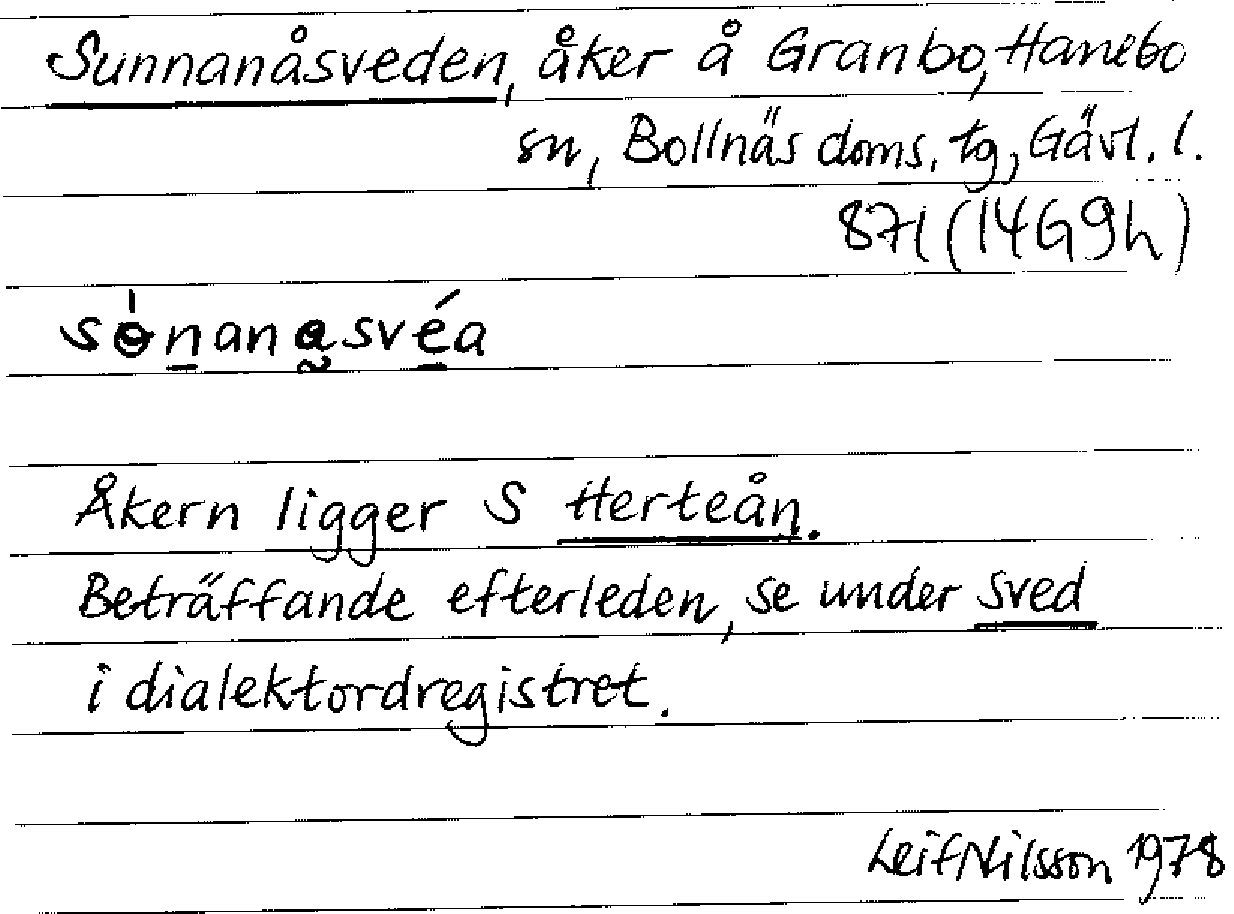 Sunnanåsveden, åker å Granbo, Hanebo
sn, Bollnäs doms. tg, Gävl. l.
871 (14G9h)
sɵ́nanasvéa
Åkern ligger S Herteån.
Beträffande efterleden, se under sved
i dialektordregistret.
Leif Nilsson 1978